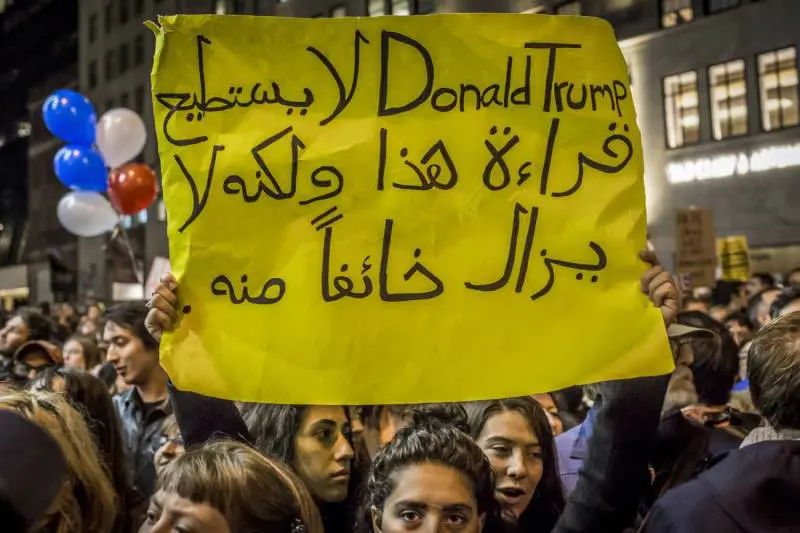 Donald Trump لا يستطيع
قراءة هذا ولكنه لا
يزال خائفاً منه.